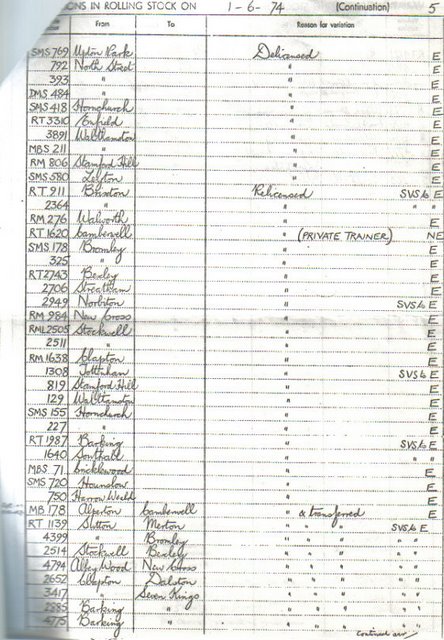 ONS IN ROLLING STOCK ON 1-6-74 (Continuation) 5
From To Reason for variation
SMS 769 Upton Park Delicensed E
792 North Street " E
393 " " E
DMS 484 " " E
SMS 418 Hornchurch " E
RT 3310 Enfield " E
3891 Walthamstow " E
MBS 211 " " E
RM 806 Stamford Hill " E
SMS 580 Leyton " E
RT 911 Brixton Relicensed SVS to E
2364 " " " "
RM 276 Walworth " E
RT 1620 Camberwell " (PRIVATE TRAINER) NE
SMS 178 Bromley " E
325 " " E
RT 2743 Bexley " E
2706 Streatham " E
2949 Norbiton " SVS to E
RM 984 New Cross " E
RML 2505 Stockwell " E
2511 " " E
RM 1638 Clapton " E
1308 Tottenham " SVS to E
819 Stamford Hill " E
129 Walthamstow " E
SMS 155 Hornchurch " E
227 " " E
RT 1987 Barking " SVS to E
1640 Southall " " "
MBS 71 Cricklewood " E
SMS 720 Hounslow " E
750 Harrow Weald " E
MB 178 Alperton Camberwell " & transferred E
RT 1139 Sutton Merton " " " SVS to E
4399 " Bromley " " " " "
2514 Stockwell Bexley " " " " "
4794 Abbey Wood New Cross " " " " "
2652 Clapton Dalston " " " " "
3417 " Seven Kings " " " " "
2885 Barking " " " " " "
4775 Barking " " " " " "
Continued over